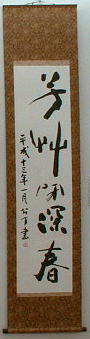 芳艸閑深春
平成十三年一月
書